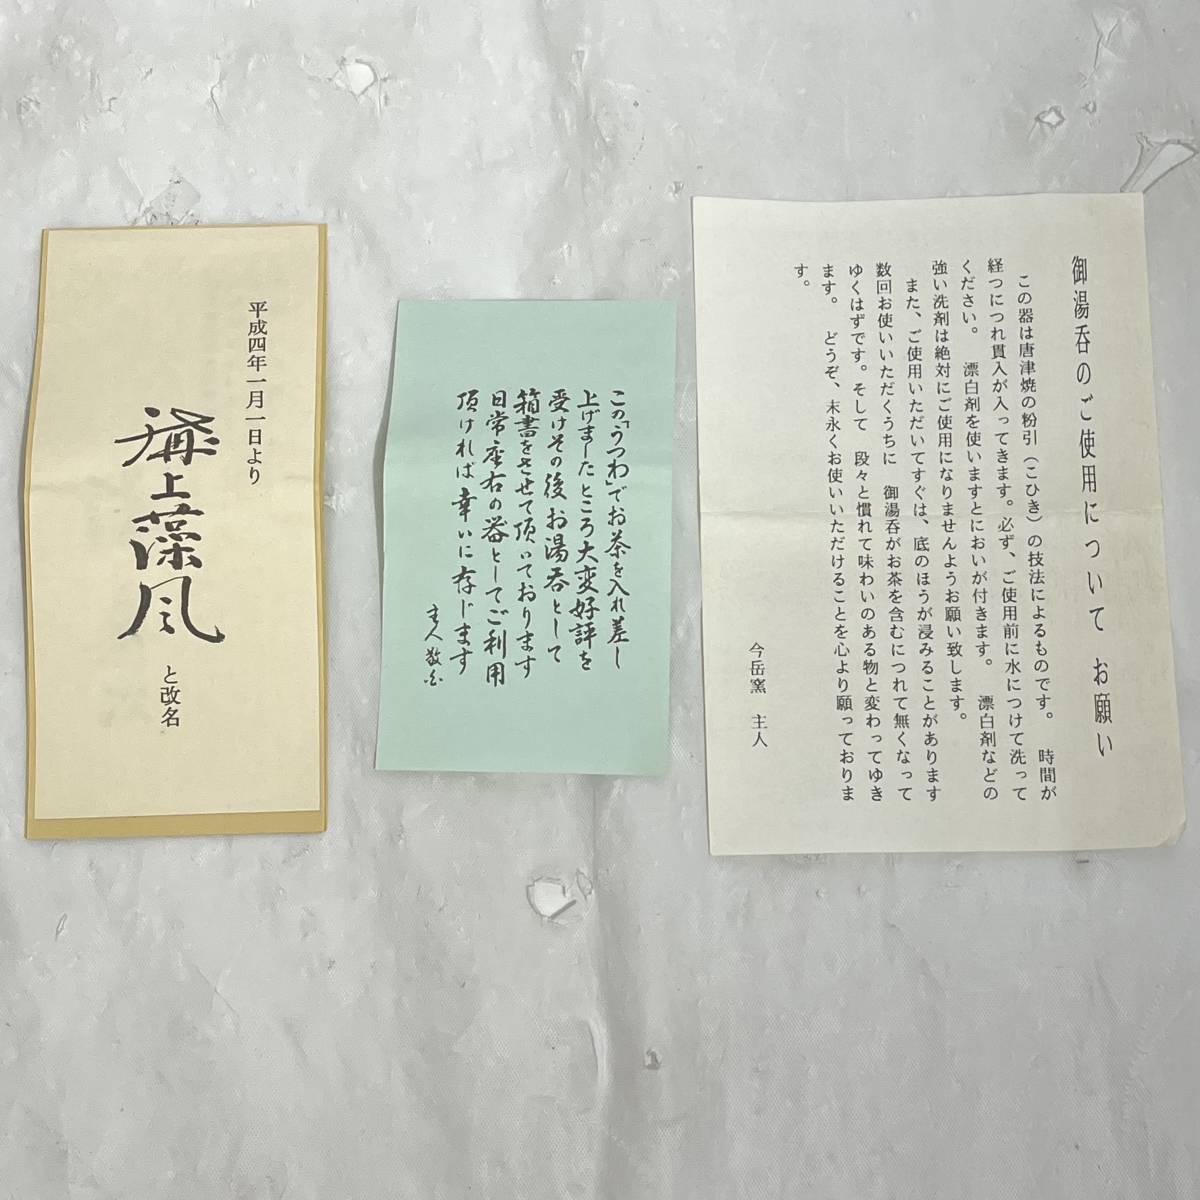 御湯呑のご使用について お願い
この器は唐津焼の粉引（こひき）の技法によるものです。 時間が
経つにつれ貫入が入ってきます。必ず、ご使用前に水につけて洗って
ください。 漂白剤を使いますとにおいが付きます。 漂白剤などの
強い洗剤は絶対にご使用になりませんようお願い致します。
また、ご使用いただいてすぐは、底のほうが浸みることがあります
数回お使いいただくうちに 御湯呑がお茶を含むにつれて無くなって
ゆくはずです。そして 段々と慣れて味わいのある物と変わってゆき
ます。 どうぞ、末永くお使いいただけることを心より願っておりま
す。
今岳窯 主人
この「うつわ」でお茶を入れ差し
上げましたところ大変好評を
受けその後お湯呑として
箱書をさせて頂いております
日常座右の器としてご利用
頂ければ幸いに存じます
主人敬白
平成四年一月一日より
溝上藻風 と改名